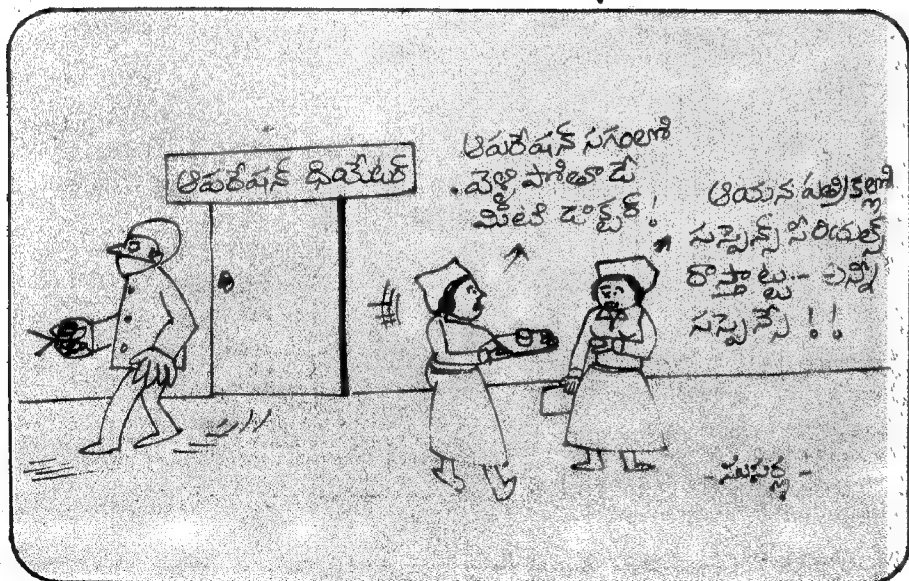 ఆపరేషన్ థియేటర్
ఆపరేషన్ సగంలో
వెళ్ళి పోతూడే
మిటి డాక్టర్!
ఆయన పత్రికల్లో
సస్పెన్స్ సీరియల్స్
రాస్తాట్ట -- అన్నీ
సస్పెన్సే !!
- సుసర్ల -